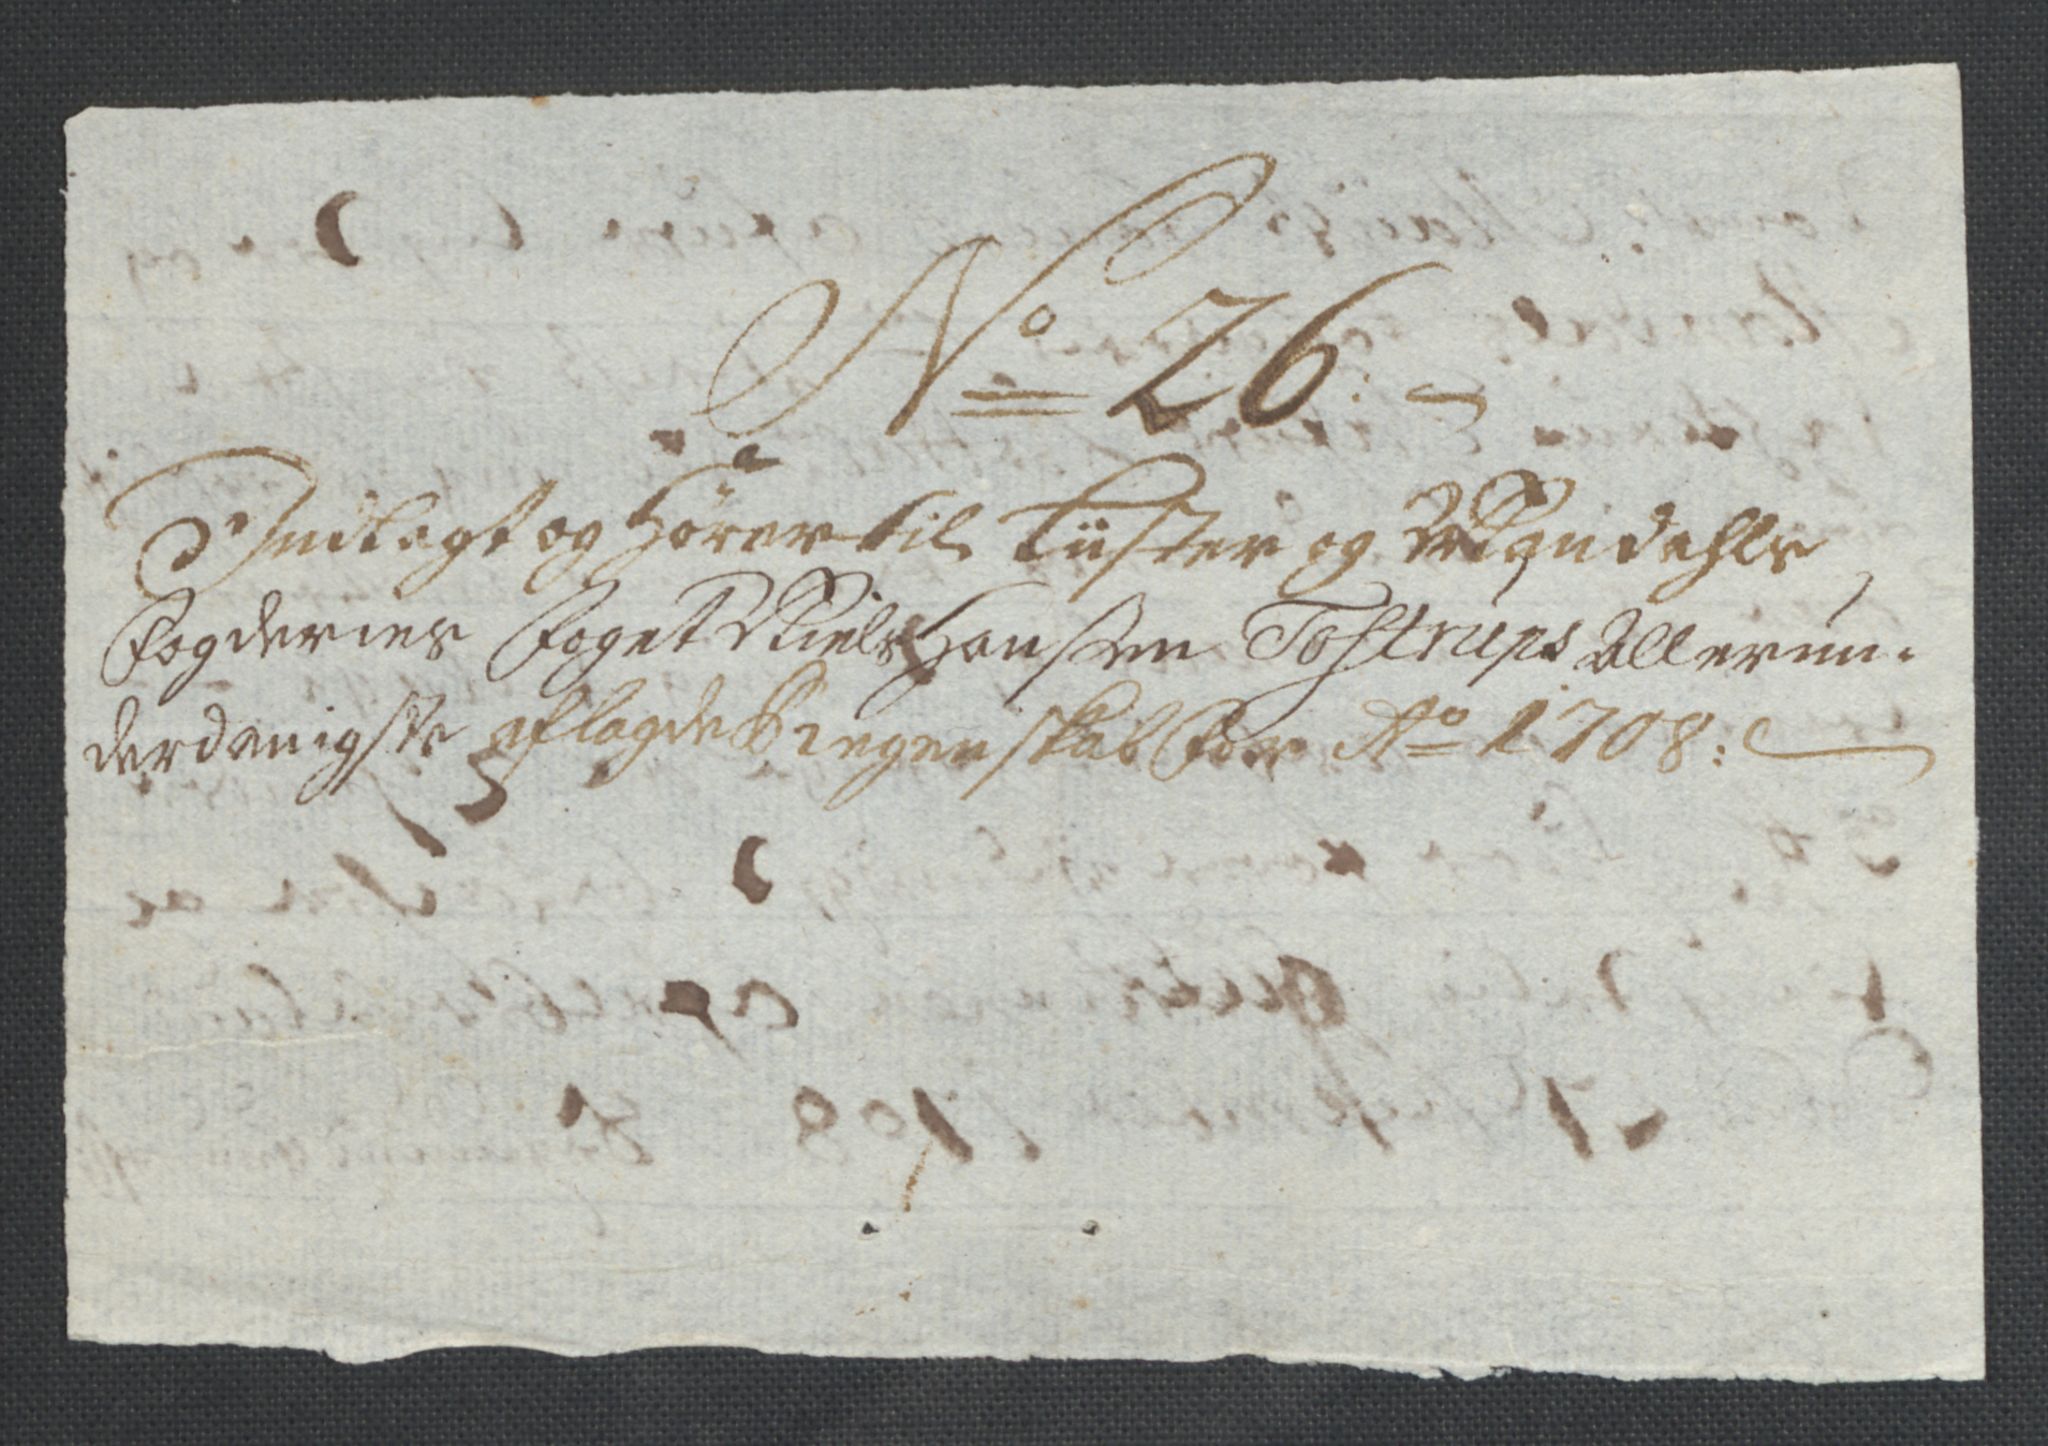 No 26:
Indlagt og Hörer til Lüster og Mandahls
Fogderies Foget Niels Hanssen Tostrups Allerun-
derdanigste aflagde Riegenskab for Ao 1708: